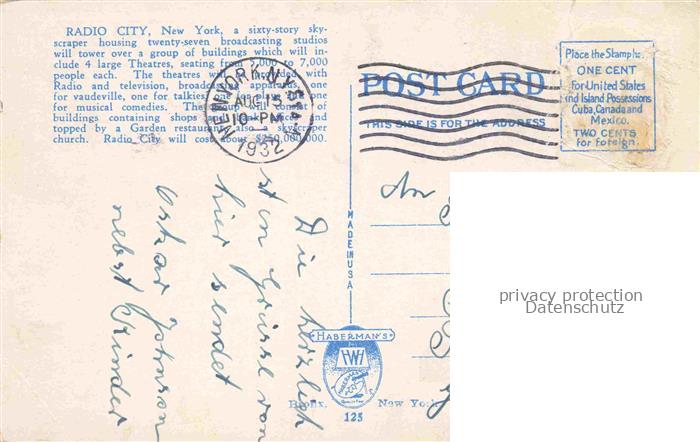 RADIO CITY, New York, a sixty-story sky-
scraper housing twenty-seven broadcasting studios
will tower over a group of buildings which will in-
clude 4 large Theatres, seating from 5,000 to 7,000
people each. The theatres will be provided with
Radio and television, broadcasting apparatus, one
for vaudeville, one for talkies, one for
for musical comedies. The group will consist of
buildings containing shops and offices and
topped by a Garden restaurant also a skyscraper
church. Radio City will cost about $250,000,000.
NEW YORK, N.Y.
AUG 15
10-PM
1932
POST CARD
THIS SIDE IS FOR THE ADDRESS
Place the Stamp here.
ONE CENT
for United States
and Island Possessions
Cuba, Canada and
Mexico.
TWO CENTS
for Foreign.
An
Die herzlich
sten Grüsse von
hier sendet
Oskar Johnson
nebst Kinder
MADE IN USA
HABERMAN'S
HWH
Bronx, New York
125
privacy protection
Datenschutz